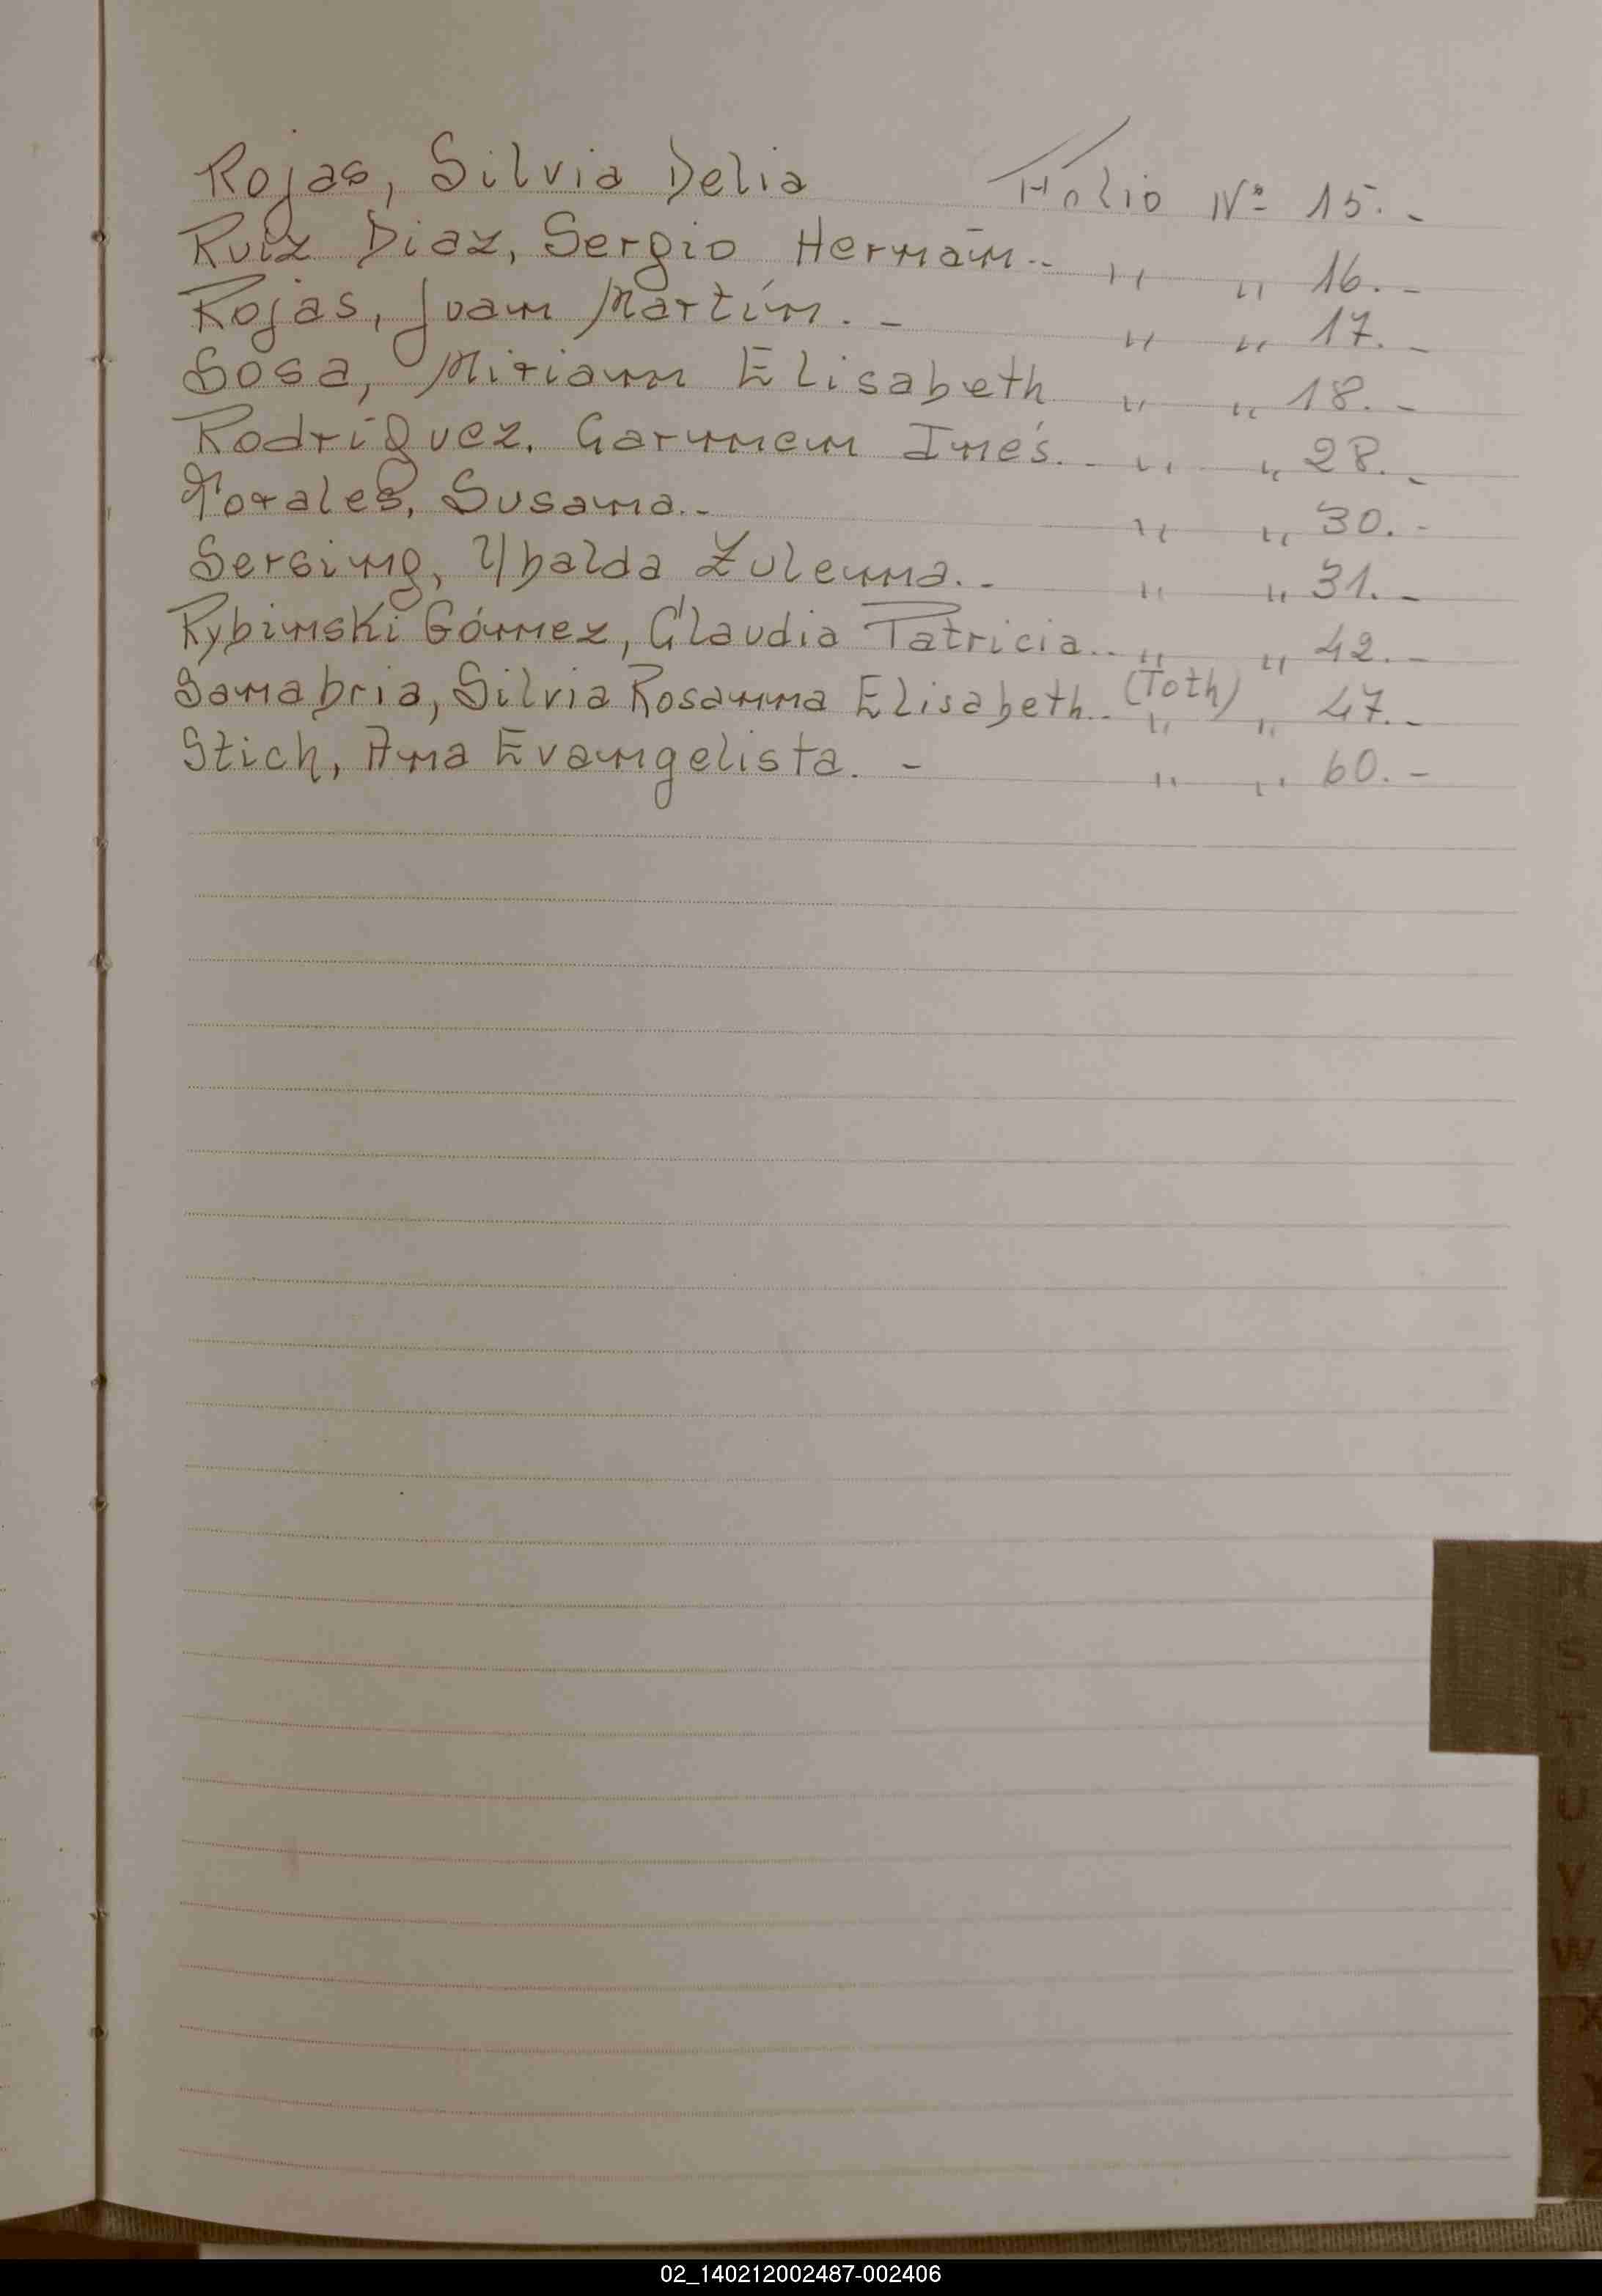 Rojas, Silvia Delia Folio Nº 15.-
Ruiz Diaz, Sergio Hernán.- " " 16.-
Rojas, Juan Martín.- " " 17.-
Sosa, Miriam Elisabeth " " 18.-
Rodríguez, Carmen Inés.- " " 28.-
Torales, Susana.- " " 30.-
Sersing, Ubalda Zulema.- " " 31.-
Rybinski Gómez, Claudia Patricia.- " " 42.-
Sanabria, Silvia Rosanna Elisabeth.- (Toth) " " 47.-
Stich, Ana Evangelista.- " " 60.-
R
S
T
U
V
W
X
Y
Z
02_140212002487-002406